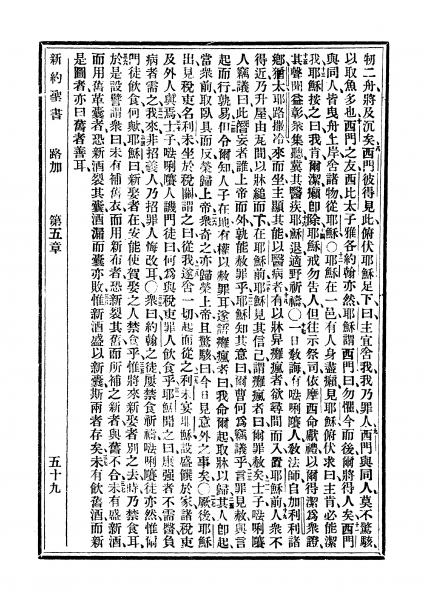 牣二舟將及沉矣西門彼得見此俯伏耶穌足下曰主宜舍我我乃罪人西門與同人莫不驚駭
以取魚多也西門之友西比太子雅各約翰亦然耶穌謂西門曰勿懼今而後爾將得人矣西門
與同人皆曳舟上岸舍諸物從耶穌〇耶穌在一邑有人身盡癩見耶穌俯伏求曰主肯必能潔
我耶穌接之曰我肯爾潔癩即除耶穌戒勿告人但往示祭司依摩西命獻禮以爾得潔爲衆證
其聲聞益彰衆集聽冀其醫疾耶穌退適野祈禱〇一日敎誨有𠵽唎㘔人敎法師自加利利諸
鄉猶太耶路撒冷來而坐主顯其能以醫病者有以牀舁癱瘋者欲尋間而入置耶穌前人衆不
得近乃升屋由瓦間以牀縋而下在耶穌前耶穌見其信己謂癱瘋者曰爾罪赦矣士子𠵽唎㘔
人竊議曰此僭妄者誰上帝而外孰能赦罪乎耶穌知其意曰爾曹何爲竊議乎言罪見赦與言
起而行孰易但令爾知人子在地有權以赦罪耳遂語癱瘋者曰我命爾起取牀以歸其人即起
當衆前取臥具而反榮歸上帝衆奇之亦歸榮上帝且驚駭曰今日見意外之事矣〇厥後耶穌
出見稅吏名利未坐於稅關謂之曰從我遂舍一切起而從之利未宴耶穌設盛饌於家諸稅吏
及外人與焉士子𠵽唎㘔人譏門徒曰何爲與稅吏罪人飲食乎耶穌聞之曰康強者不需醫負
病者需之我來非招義人乃招罪人悔改耳〇衆曰約翰之徒屢禁食祈禱𠵽唎㘔徒亦然惟爾
門徒飲食何歟耶穌曰新娶者在安能使賀娶之人禁食乎惟將來新娶者別之去時乃禁食耳
於是設譬謂衆曰未有補舊衣而用新布者恐新裂其舊而所補之新者與舊不合未有盛新酒
而用舊革囊者恐新酒裂其囊酒漏而囊亦敗惟新酒盛以新囊斯兩者存矣未有飲舊酒而新
是圖者亦曰舊者善耳
新約聖書 路加 第五章 五十九